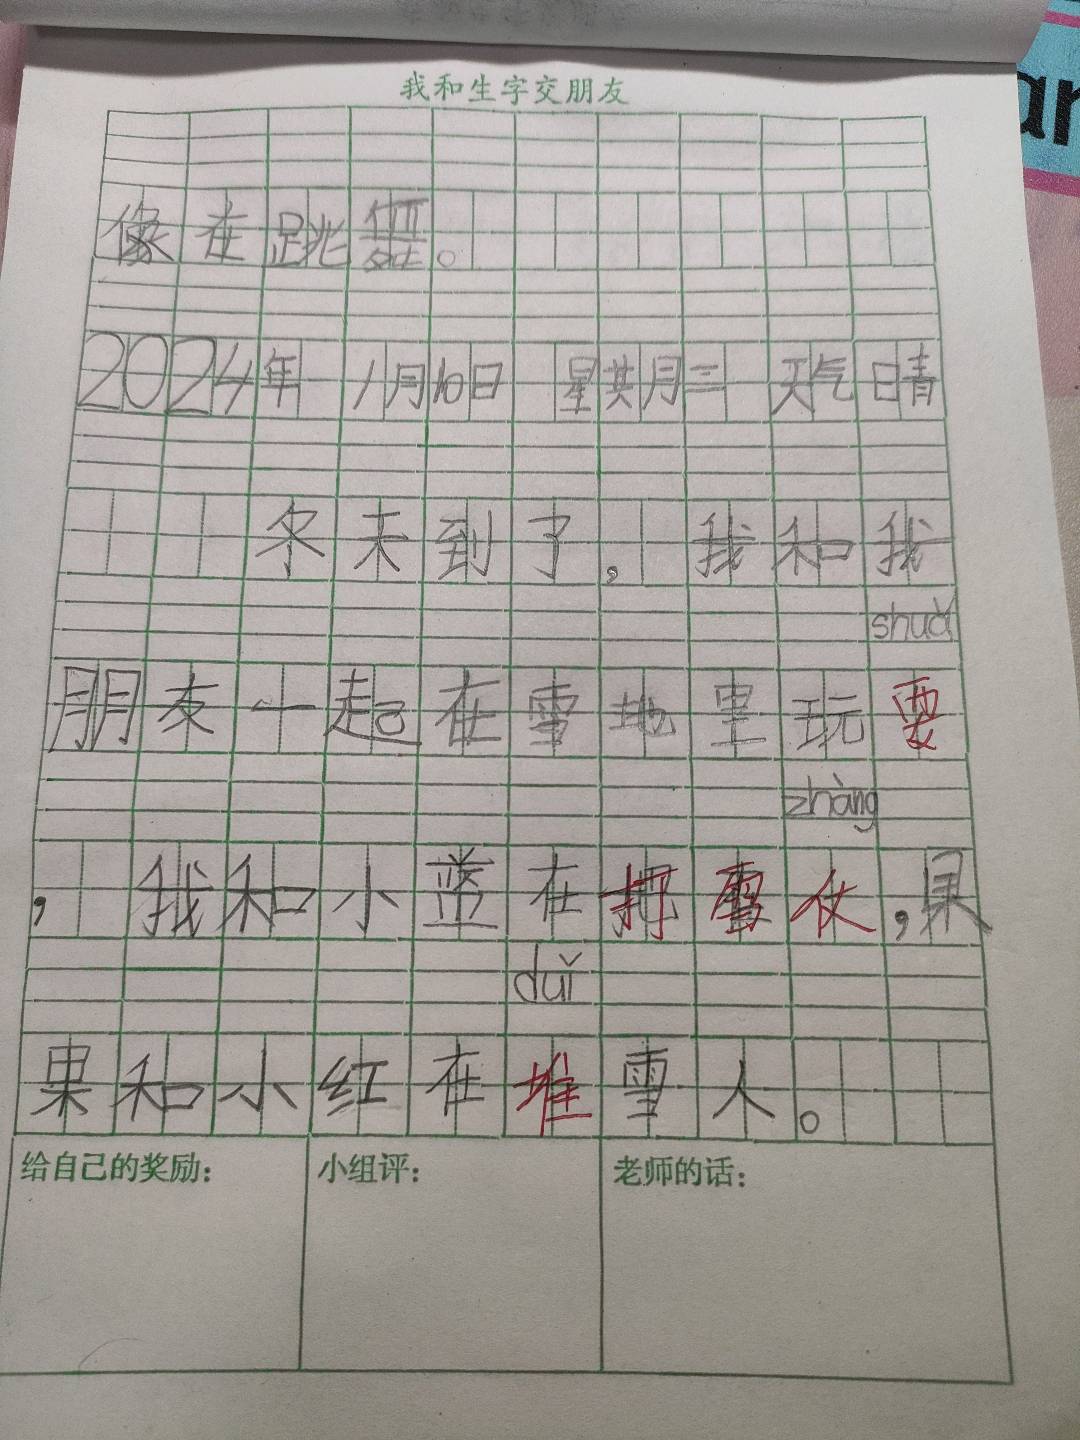 我和生字交朋友
像在跳舞。
2024年 1月10日 星期三 天气晴
冬天到了,我和我
shuǎ
朋友一起在雪地里玩耍
zhàng
,我和小蓝在打雪仗,果
duī
果和小红在堆雪人。
给自己的奖励: 小组评: 老师的话: